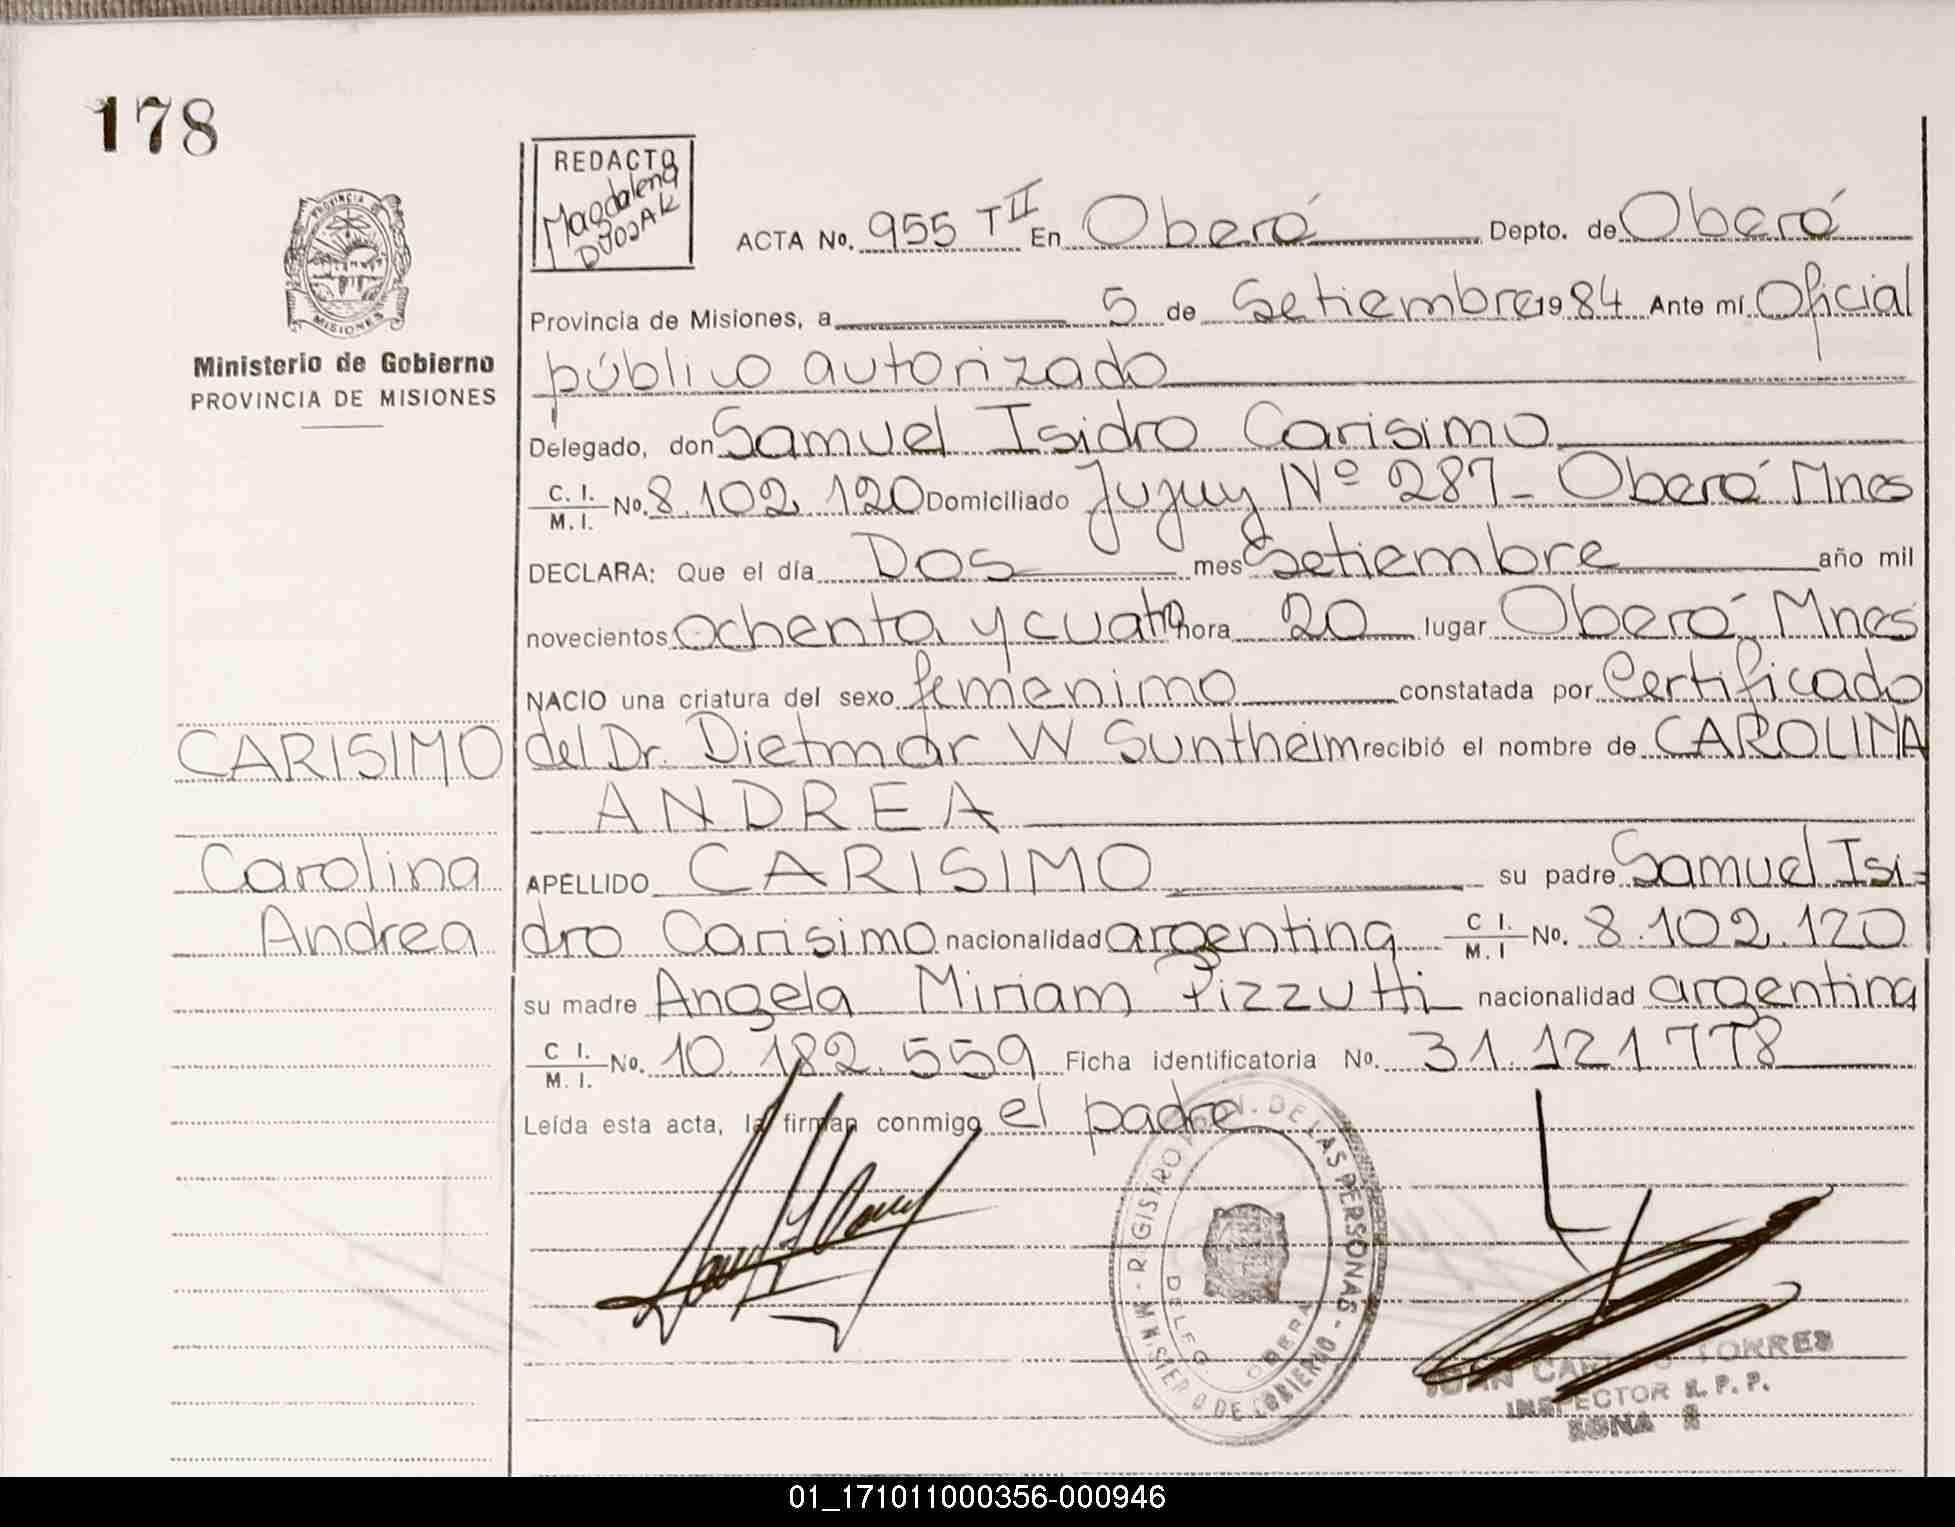 178
REDACTO
Magdalena
DVO2AK
PROVINCIA DE
MISIONES
Ministerio de Gobierno
PROVINCIA DE MISIONES
ACTA No. 955 T II En Oberá Depto. de Oberá
Provincia de Misiones, a 5 de Setiembre 1984 Ante mí Oficial
público autorizado
Delegado, don Samuel Isidro Carisimo
C. I. / M. I. No. 8.102.120 Domiciliado Jujuy Nº 287 - Oberá Mnes
DECLARA: Que el día Dos mes Setiembre año mil
novecientos ochenta y cuatro hora 20 lugar Oberá Mnes
NACIO una criatura del sexo femenimo constatada por Certificado
del Dr. Dietmar W Suntheim recibió el nombre de CAROLINA
ANDREA
APELLIDO CARISIMO su padre Samuel Isi=
dro Carisimo nacionalidad argentina C I. / M. I No. 8.102.120
su madre Angela Miriam Pizzutti nacionalidad argentina
C I. / M. I. No. 10.182.559 Ficha identificatoria No. 31.121778
Leída esta acta, la firman conmigo el padre
CARISIMO
Carolina
Andrea
REGISTRO DE LAS PERSONAS - MINISTERIO DE GOBIERNO
DELEG. OBERA
JUAN TORRES
INSPECTOR R. P. P.
ZONA
01_171011000356-000946